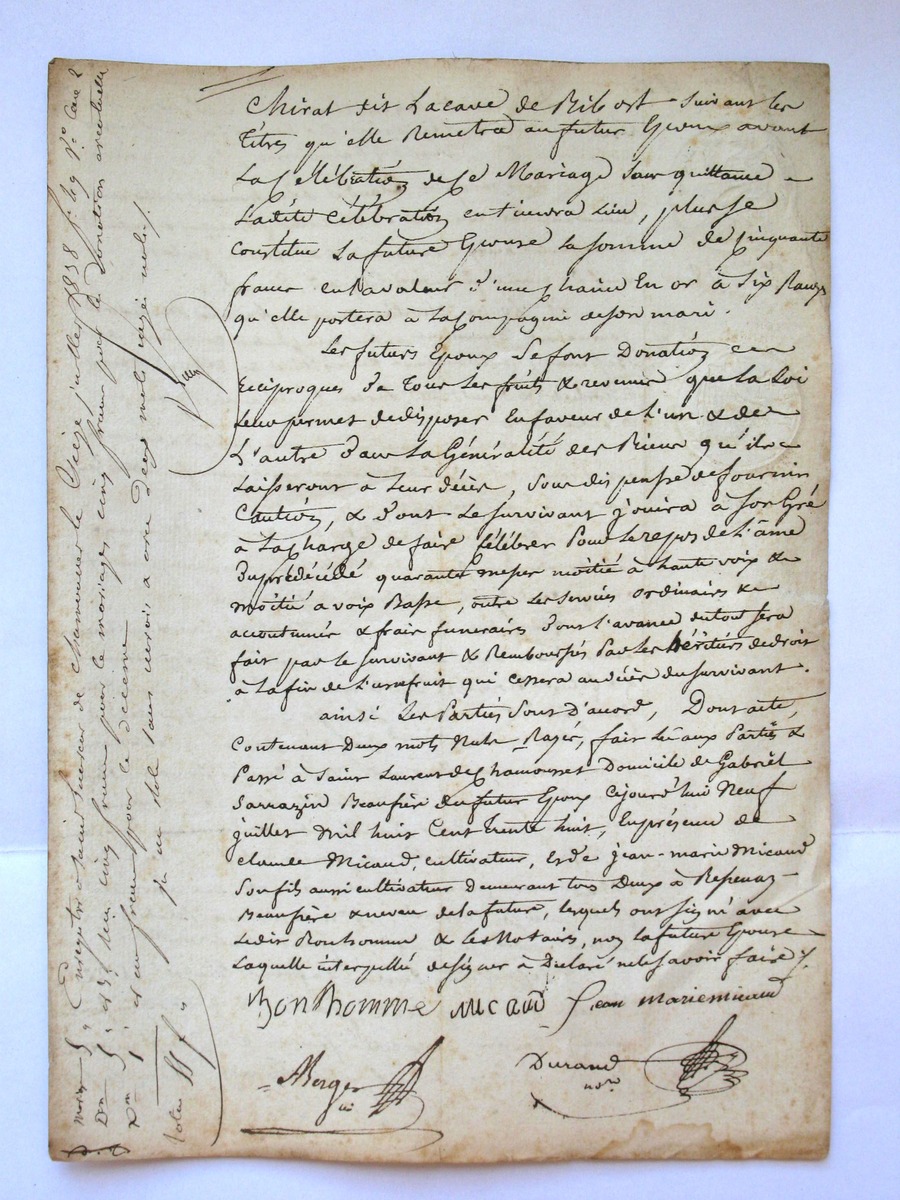 Chirat dit Lacave de Ribost suivant les
titres qu'elle Remetra au futur Epoux avant
La Célébration de Ce Mariage sans quittance
Ladite Célébration en tiendra Lieu, plus se
Constitue La future Epouse La somme de Cinquante
francs en La valeur d'une Chaine En or à Six Rangs
qu'elle portera à La Compagnie de son mari.
Les futurs Epoux Se font Donation
Réciproques de Tous Les fruits & revenus que La Loi
Leur permet de disposer En faveur de L'un & de
L'autre dans La Généralité des Biens qu'ils
Laisseront à Leur décès, Sous dispense de fournir
Caution, & dont Le survivant jouira à Son Gré
à La Charge de faire Célébrer Pour Le repos de L'âme
Du prédécédé quarante messes moitié à haute voix &
moitié à voix Basse, outre Les services ordinaires &
accoutumés & frais funeraires dont L'avance du tout sera
fait par le Survivant & Remboursés Par Les héritiers de droit
à La fin de L'usufruit qui cessera au décès du survivant.
ainsi Les Parties Sont D'acord, Dont acte,
Contenant Deux mots Nuls Rayés, fait Lu aux Parties &
Passé à Saint Laurent de Chamousset Domicile de Gabriel
Sarrazin Beaufrère du futur Epoux Cejourd'hui Neuf
juillet Mil huit Cent trente huit, En présence de
Claude Micaud, cultivateur, & de jean-marie Micaud
Son fils aussi cultivateur demeurant tous Deux à
Beaufrère & neveu de la future, lesquels ont signé avec
Ledit Bonhomme & Les Notaires, non La future Epouse
Laquelle interpellé de signer à Déclaré ne le savoir faire
Bonhomme Micaud Jean Marie micaud
Berger
Durand
nore
Enregistré à Saint Laurent de Chamousset le Treize juillet 1838 f. 49 Vo Case 2
Reçu cinq francs pour le mariage, cinq francs pour la Donation
et un franc pour le decime